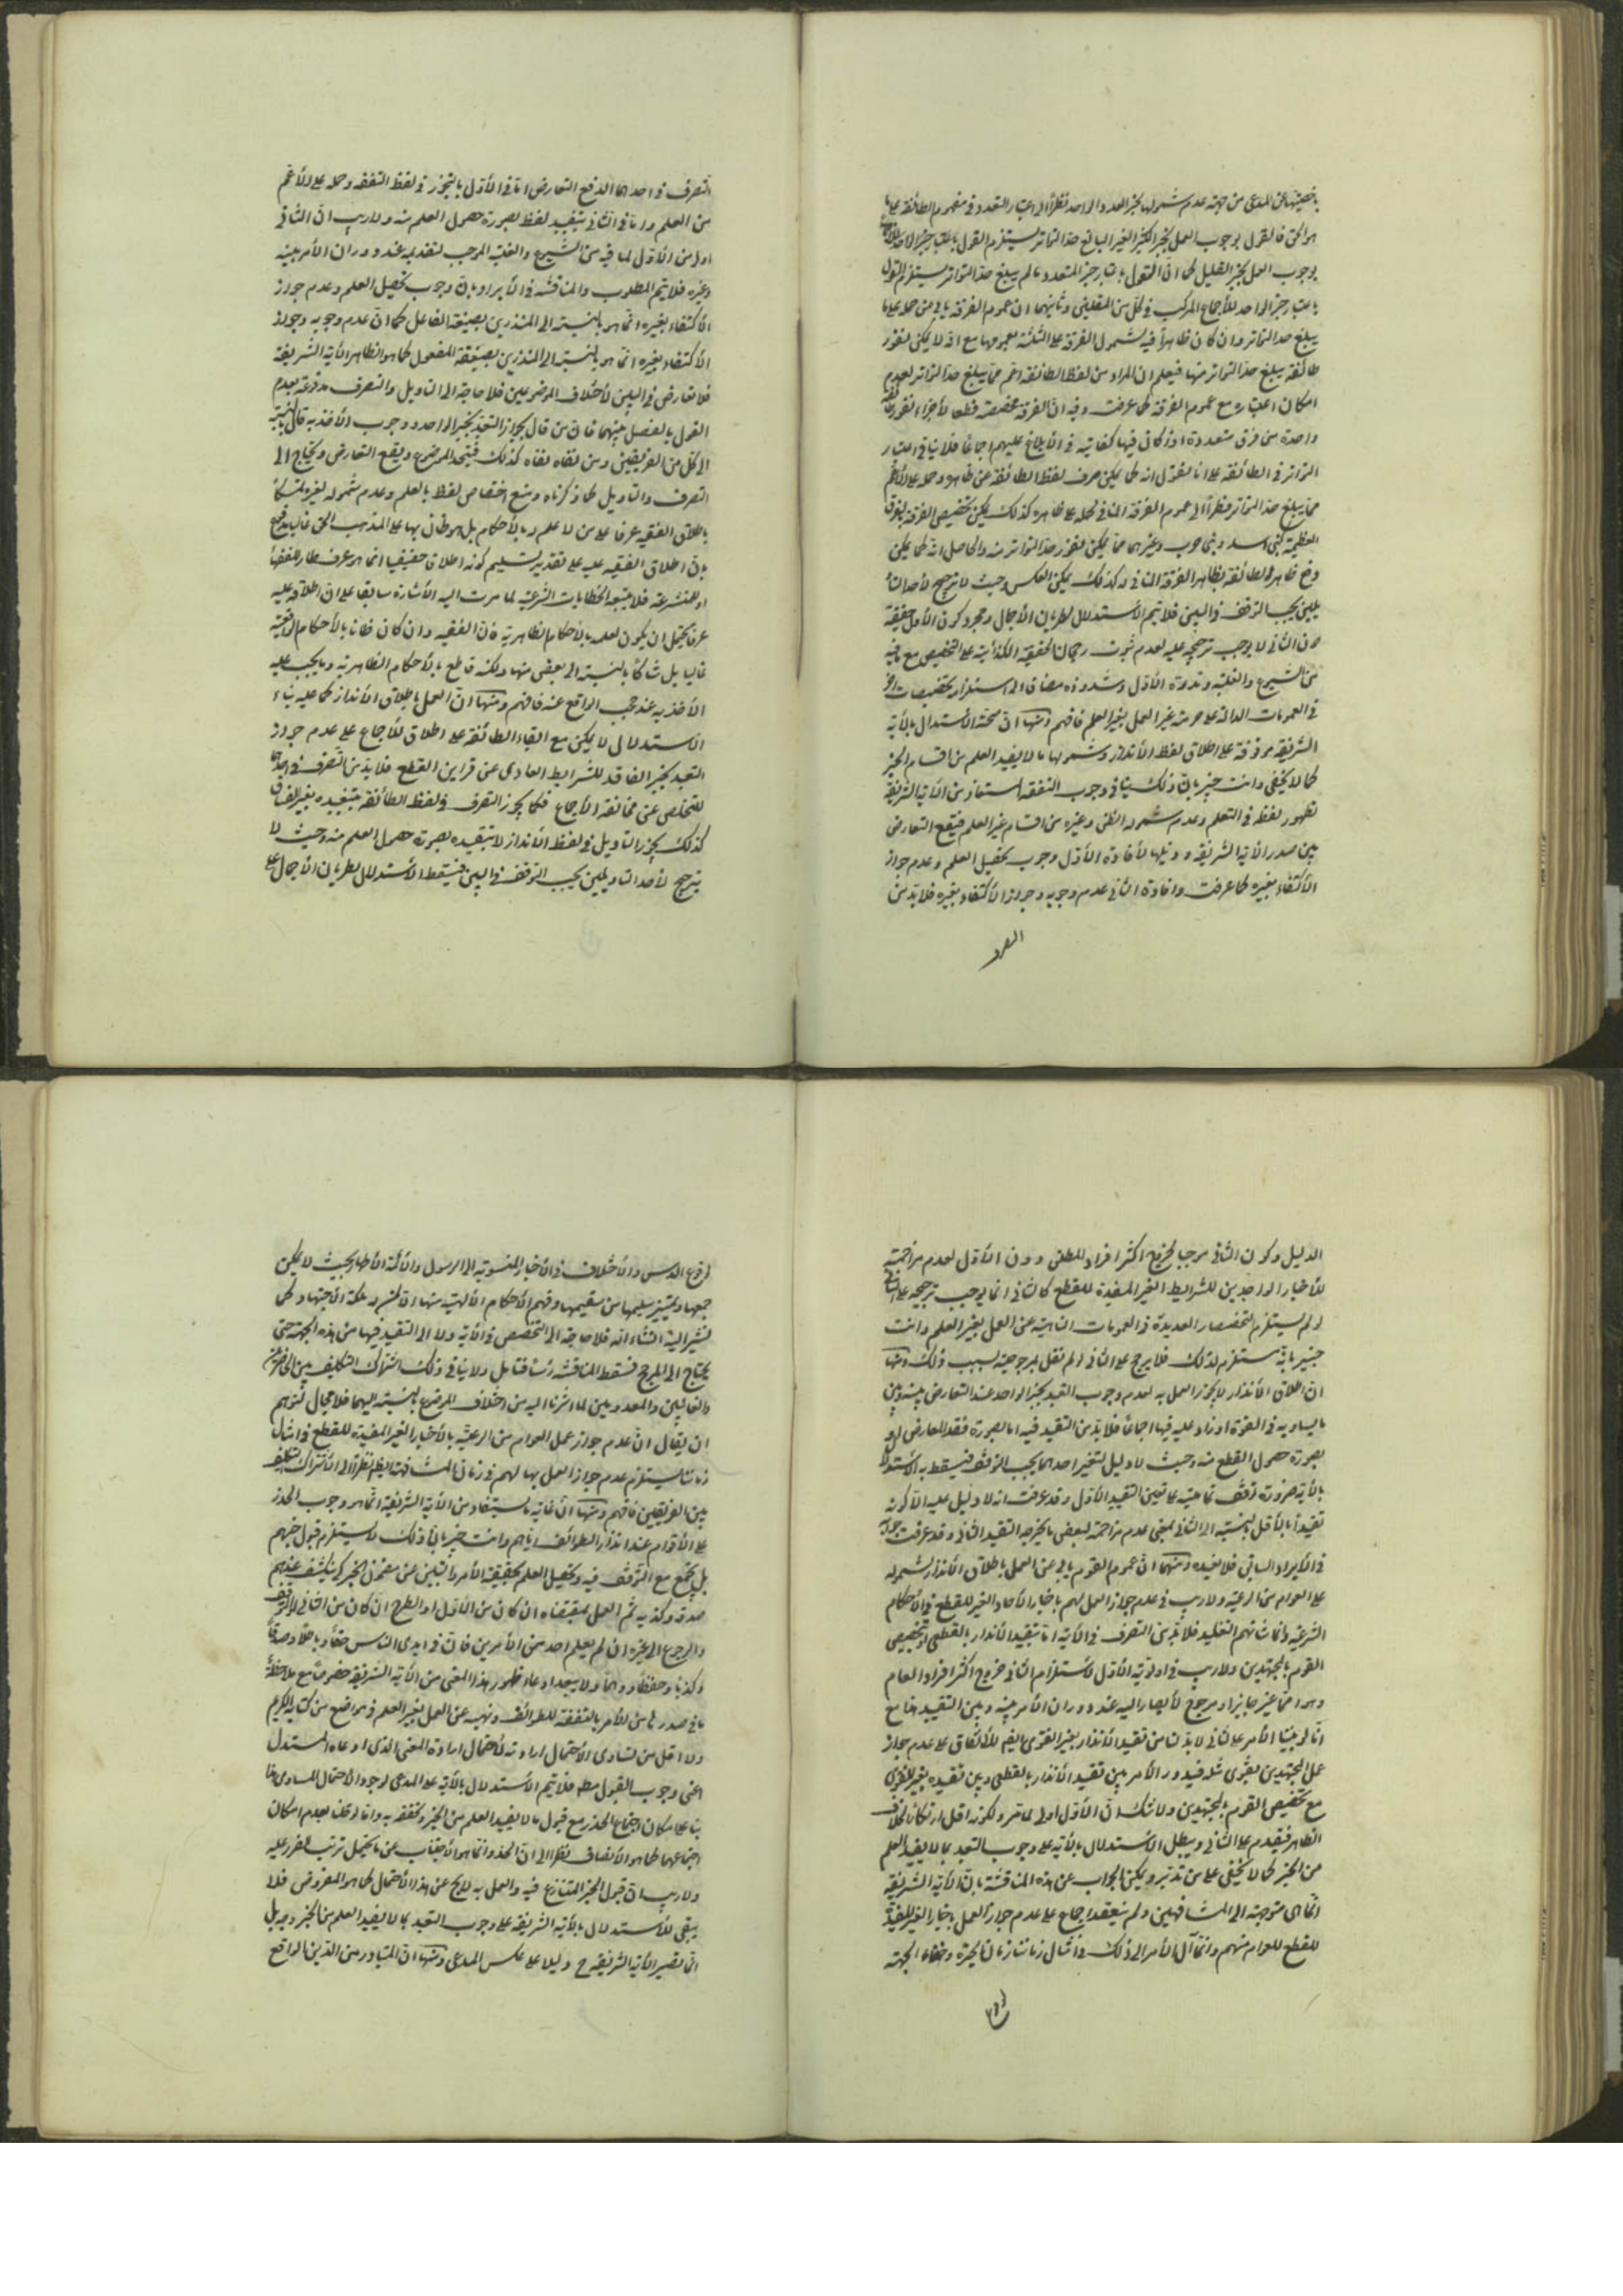 باخصيتها عن المدعى من جهة عدم شمولها لخبر العدد والواحد نظرا الى اعتبار التعدد فى مفهوم الطائفة على ما
هو الحق فالقول بوجوب العمل بخبر الكثير الغير البالغ حد التواتر يستلزم القول باعتبار خبر الواحد
بوجوب العمل بخبر القليل كما ان القول باعتبار خبر المتعدد ما لم يبلغ حد التواتر يستلزم القول
باعتبار خبر الواحد للأجماع المركب فى كل من المقامين وثانيهما ان عموم الفرقة يابى من حمله على ما
يبلغ حد التواتر وان كان ظاهرا فيه لشمول الفرقة على الثلثة بعمومها مع انه لا يمكن نفور
طائفة يبلغ حد التواتر منها فيعلم ان المراد من لفظ الطائفة اعم مما يبلغ حد التواتر لعدم
امكان اعتباره مع عموم الفرقة كما عرفت وفيه ان الفرقة مخصصة قطعا لأجزاء نفور طائفة
واحدة من فرق متعددة اذا كان فيها كفاية فى الأبلاغ عليهم اجماعا فلا ينافى اعتبار
التواتر فى الطائفة على انا نقول انه كما يمكن صرف لفظ الطائفة عن ظاهره وحمله على الأعم
مما يبلغ حد التواتر نظرا الى عموم الفرقة المنافى لحمله على ظاهره كذلك يمكن تخصيص الفرقة بالفرق
العظيمة كبنى اسد وبنى حرب وغيرهما مما يمكن نفور حد التواتر منه والحاصل انه كما يمكن
دفع ظاهر الطائفة بظاهر الفرقة المنافى له كذلك يمكن العكس وحيث لا ترجيح لأحد التأ
ويلين يجب التوقف فى البين فلا يتم الأستدلال لطريان الأجمال ومجرد كون الأول حقيقة
دون الثانى لا يوجب ترجيحه عليه لعدم ثبوت رجحان الحقيقة الكذائية على التخصيص مع ما فيه
من الشيوع والغلبة وندوة الأول وشذوذه مضافا الى استلزام تخصيصات اخر
فى العمومات الدالة على حرمة غير العمل بغير العلم فافهم ومنها ان صحة الأستدلال بالأية
الشريفة موقوفة على اطلاق لفظ الأنذار وشمولها ما لا يفيد العلم من اقسام الخبر
كما لا يخفى وانت خبير بان ذلك ينافى وجوب التفقه المستفاد من الأية الشريفة
لظهور لفظه فى التعلم وعدم شموله الظن وغيره من اقسام غير العلم فيقع التعارض
بين صدر الأية الشريفة وذيلها لأفادة الأول وجوب تحصيل العلم وعدم جواز
الأكتفاء بغيره كما عرفت وافادة الثانى عدم وجوبه وجواز الأكتفاء بغيره فلا بد من
التصرف
التصرف فى احدهما لدفع التعارض اما فى الأول بالتجوز فى لفظ التفقه وحمله على الأعم
من العلم واما فى الثانى بتقييد لفظ بصورة حصول العلم منه ولا ريب ان الثانى
اولى من الأول لما فيه من الشيوع والغلبة الموجب لتقديمه عند دوران الأمر بينه
وغيره فلا يتم المطلوب والمناقشة فى الأيراد بان وجوب تحصيل العلم وعدم جواز
الأكتفاء بغيره انما هو بالنسبة الى المنذرين بصيغة الفاعل كما ان عدم وجوبه وجواز
الأكتفاء بغيره انما هو بالنسبة الى المنذرين بصيغة المفعول كما هو الظاهر الأية الشريفة
فلا تعارض فى البين لأختلاف الموضوعين فلا حاجة الى التاويل والتصرف مدفوعة بعدم
القول بالفصل بينهما فان من قال بجواز التعبد بخبر الواحد ووجوب الأخذ به قال بالنسبة
الى كل من الفريقين ومن نفاه نفاه كذلك فيتحد الموضوع ويقع التعارض ويحتاج الى
التصرف والتاويل كما ذكرناه ومنع اختصاص لفظ بالعلم وعدم شموله لغيره تمسكا
باطلاق الفقيه عرفا على من لا علم له بالأحكام بل هو ظان بها على المذهب الحق غالبا مدفوع
بان اطلاق الفقيه عليه على تقدير تسليم كونه اطلاق حقيقيا انما هو عرف طار للفقها
او للمتشرعة فلا يتبعه الخطابات الشرعية لما مرت اليه الأشارة سابقا على ان اطلاقه عليه
عرفا يحتمل ان يكون لعلمه بالأحكام الظاهرية فان الفقيه وان كان ظانا بالأحكام الواقعية
غالبا بل شاكا بالنسبة الى بعض منها ولكنه قاطع بالأحكام الظاهرية وما يجب عليه
الأخذ به عند حجب الواقع عنه فافهم ومنها ان العمل باطلاق الأنذار كما عليه بناء
الأستدلال لا يمكن مع ابقاء الطائفة على اطلاق للأجماع على عدم جواز
التعبد بخبر الفاقد للشرايط العادى عن قراين القطع فلا بد من التصرف فى احدهما
للتخلص عن مخالفة الأجماع فكما يجوز التصرف فى لفظ الطائفة بتقييده بغير الفساق
كذلك يجوز التاويل فى لفظ الأنذار لا بتقييده بصورة حصول العلم منه وحيث لا
يترجح لأحد التاويلين يجب التوقف فى البين فيسقط الأستدلال لطريان الأجمال على
الدليل وكون الثانى موجبا لخروج اكثر افراد المطلق دون الأول لعدم مزاحمته
للأخبار الواجدين للشرايط الغير المفيدة للقطع كالثانى انما يوجب ترجيحه على الثانى
لو لم يستلزم التخصيصات العديدة فى العمومات الناهية عن العمل بغير العلم وانت
خبير بانه مستلزم لذلك فلا يرجح على الثانى لو لم نقل بمرجوحيته بسبب ذلك ومنها
ان اطلاق الأنذار لا يجوز العمل به لعدم وجوب التعبد بخبر الواحد عند التعارض بينه وبين
ما يساويه فى القوة او زاد عليه فيها اجماعا فلا بد من التقييد فيه اما بصورة فقد المعارض له او
بصورة حصول القطع منه وحيث لا دليل لتخير احدهما يجب التوقف فيسقط به الأستدلال
بالأية ضرورة توقف تماميته على تعيين التقييد الأول وقد عرفت انه لا دليل عليه الا كونه
تقييدا بالأقل بالنسبة الى الثانى بمعنى عدم مزاحمته لبعض ما يخرجه التقييد الثانى وقد عرفت جوابه
فى الأيراد السابق فلا نعيده ومنها ان عموم القوم يابى عن العمل باطلاق الأنذار لشموله
على العوام من الرعية ولا ريب فى عدم جواز العمل لهم باخبار الأحاد الغير للقطع فى الأحكام
الشرعية وانما شانهم التقليد فلا بد من التصرف فى الأية اما بتقييد الأنذار بالقطعى او تخصيص
القوم بالمجتهدين ولا ريب فى اولوية الأول لأستلزام الثانى خروج اكثر افراد العام
وهو اما غير جايز او مرجوح لا يصار اليه عند دوران الأمر بينه وبين التقييد هذا مع
انا لو بنينا الأمر على الثانى لا بد لنا من تقييد الأنذار بغير الفتوى ايضا للأتفاق على عدم جواز
عمل المجتهدين بفتوى مثله فيدور الأمر بين تقييد الأنذار بالقطعى وبين تقييده بغير الفتوى
مع تخصيص القوم بالمجتهدين ولا شك ان الأول اولى لما مر ولكونه اقل ارتكابا لخلاف
الظاهر فيقدم على الثانى ويبطل الأستدلال بالأية على وجوب التعبد بما لا يفيد العلم
من الخبر كما لا يخفى على من تدبر ويمكن الجواب عن هذه المناقشة بان الأية الشريفة
انما هى متوجهة الى المشافهين ولم ينعقد اجماع على عدم جواز العمل باخبار الغير المفيدة
للقطع للعوام منهم وانما آل الأمر الى ذلك فى امثال زماننا زمان الحيرة وخفاء الحجة
لوقوع
لوقوع الدس والأختلاف فى الأخبار المنسوبة الى الرسول والأئمة الأطهار بحيث لا يمكن
جمعها وتمييز سليمها من سقيمها وفهم الأحكام الألهية منها الا لمن له ملكة الأجتهاد كما
نشير اليه انشاء الله فلا حاجة الى التخصيص فى الأية ولا الى التقييد فيها من هذه الجهة حتى
يحتاج الى المرجح فسقط المناقشة رأسا فتامل ولا ينافى ذلك اشتراك التكليف بين الحاضرين
والغائبين والمعدومين لما اشرنا اليه من اختلاف الموضوع بالنسبة اليهما فلا مجال لتوهم
ان يقال ان عدم جواز عمل العوام من الرعية بالأخبار الغير المفيدة للقطع فى امثال
زماننا يستلزم عدم جواز العمل بها لهم فى زمان المشافهة ايضا نظرا الى اشتراك التكليف
بين الفريقين فافهم ومنها ان غاية ما يستفاد من الأية الشريفة انما هو وجوب الحذر
على الأقوام عند انذار الطوائف اياهم وانت خبير بان ذلك لا يستلزم قبول خبرهم
بل يجتمع مع التوقف فيه وتحصيل العلم بحقيقة الأمر والتبين عن مضمون الخبر كى ينكشف عندهم
صدقه وكذبه ثم العمل بمقتضاه ان كان من الأول او الطرح ان كان من الثانى او التوقف
والرجوع الى غيره ان لم يعلم احد من الأمرين فان فى ايدى الناس حقا وباطلا وصدقا
وكذبا وحفظا ووهما ولا يبعد ادعاء ظهور هذا المعنى من الأية الشريفة خصوصا مع ملاحظة
ما فى صدرها من الأمر بالتفقه للطوائف ونهيه عن العمل بغير العلم فى مواضع من كتابه الكريم
ولا اقل من تساوى الأحتمال ارادته لأحتمال ارادة المعنى الذى ادعاه المستدل
اعنى وجوب القبول مط فلا يتم الأستدلال بالأية على المدعى لوجود الأحتمال المساوى هذا
بناء على امكان اجتماع الحذر مع قبول ما لا يفيد العلم من الخبر وتحققه به واما لو قلنا بعدم امكان
اجتماعهما كما هو الأنصاف نظرا الى ان الحذر انما هو الأجتناب عن ما يحتمل ترتب الضرر عليه
ولا ريب ان قبول الخبر المتنازع فيه والعمل به لا يخ عن هذا الأحتمال كما هو المفروض فلا
يبقى للأستدلال بالأية الشريفة على وجوب التعبد بما لا يفيد العلم من الخبر وجه بل
انما تصير الأية الشريفة ح دليلا على عكس المدعى ومنها ان المتبادر من الدين الواقع